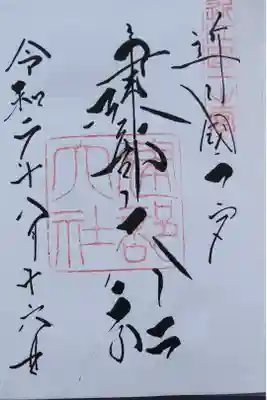 近江國一宮
建部大社
令和二年八月十六日
建部
大社